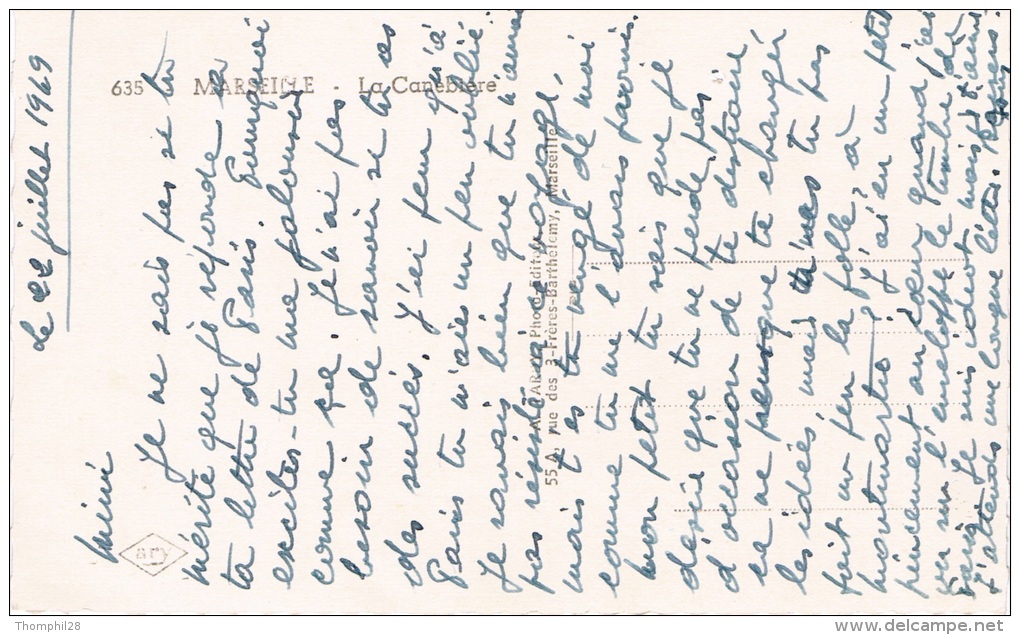 635 MARSEILLE - La Canebière
ary
ARY Photo-Editeur
55A, rue des 3-Frères-Barthélemy, Marseille
Le 22 juillet 1969
Mimi
Je ne sais pas si tu
mérité que je réponde à
ta lettre de Paris. Pourquoi
excites-tu me jalousie
comme ça. Je n'ai pas
besoin de savoir si tu as
des succès. J'ai peur qu'à
Paris tu m'aies un peu oublié.
Je savais bien que tu n'aurais
pas résisté à ce
mais t es tu vengé de moi
comme tu me l'avais promis.
Mon petit tu sais que je
désire que tu ne perde pas
d'occasion de te distraire
ça ne presque te changer
les idées mais tu m'as tu pas
fait un peu la folle? à
montmartre? J'ai eu un petit
pincement au cœur quand j'ai
vu sur l'enveloffe le timbre de
Paris. Je suis idiot mais j t'aime
J'attends une longue lettre.
Thomphil28
delcampe.net